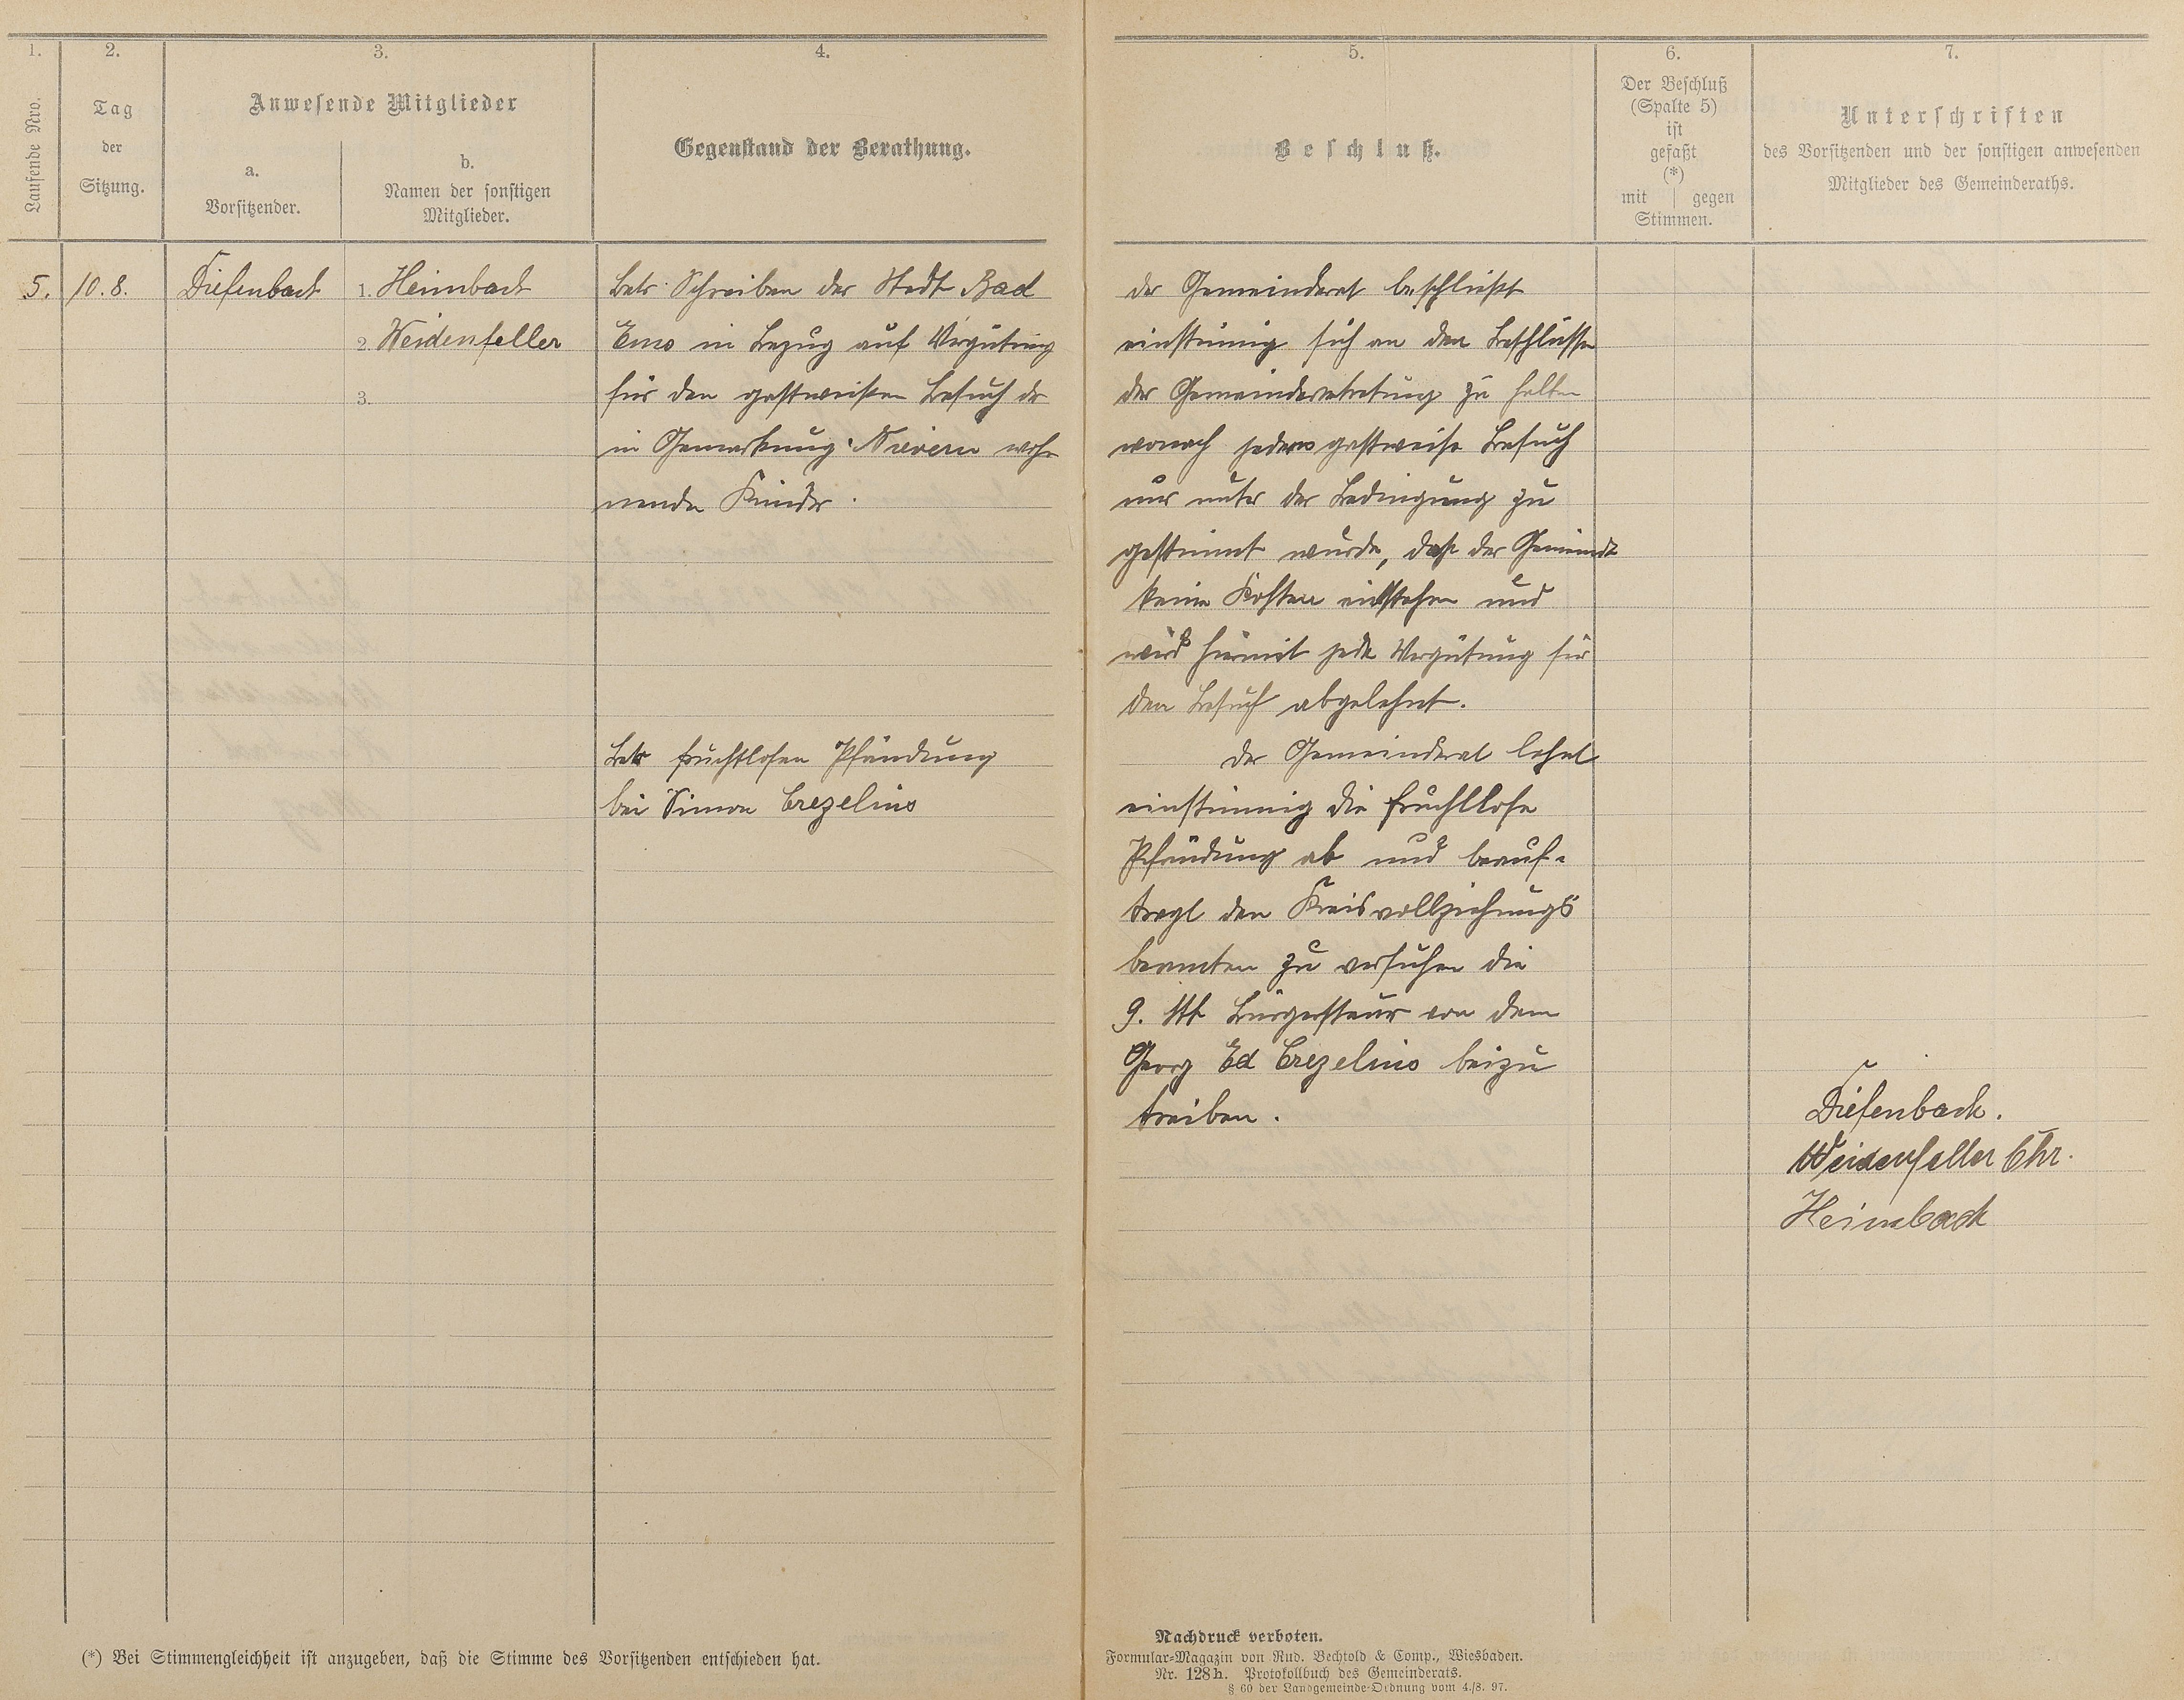 1.
2.
3.
4.
Laufende Nro.
Tag
der
Sitzung.
Anwesende Mitglieder
a.
Vorsitzender.
b.
Namen der sonstigen
Mitglieder.
Gegenstand der Berathung.
5. 10.8. Diefenbach 1. Heimbach
2. Weidenfeller
3.
Betr. Schreiben der Stadt Bad
Ems in Bezug auf Vergütung
für den gastweisen Besuch der
in Gemarkung Nievern woh
nenden Kinder.
Betr fruchtlosen Pfändung
bei Simon Crezelius
(*) Bei Stimmengleichheit ist anzugeben, daß die Stimme des Vorsitzenden entschieden hat.
5.
6.
7.
Beschluß.
Der Beschluß
(Spalte 5)
ist
gefaßt
(*)
mit gegen
Stimmen.
Unterschriften
des Vorsitzenden und der sonstigen anwesenden
Mitglieder des Gemeinderaths.
der Gemeinderat beschließt
einstimmig sich an den Beschlusse
der Gemeindevertretung zu halten
wonach jeder gastweise Besuch
nur unter der Bedingung zu
gestimmt wurde, daß der Gemeinde
keine Kosten entstehen und
wird hiermit jede Vergütung für
den Besuch abgelehnt.
der Gemeinderat lehnt
einstimmig die fruchtlose
Pfändung ab und beauf-
tragt den Kreisvollziehungs
beamten zu versuchen die
9. Mk Bürgersteuer von dem
Georg Ed Crezelius beizu
treiben.
Diefenbach.
Weidenfeller Chr.
Heimbach
Nachdruck verboten.
Formular-Magazin von Rud. Bechtold & Comp., Wiesbaden.
Nr. 128h. Protokollbuch des Gemeinderats.
§ 60 der Landgemeinde-Ordnung vom 4./8. 97.